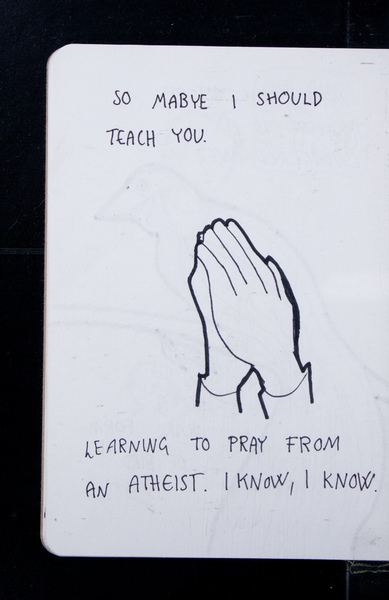 SO MABYE I SHOULD
TEACH YOU.
LEARNING TO PRAY FROM
AN ATHEIST. I KNOW, I KNOW.